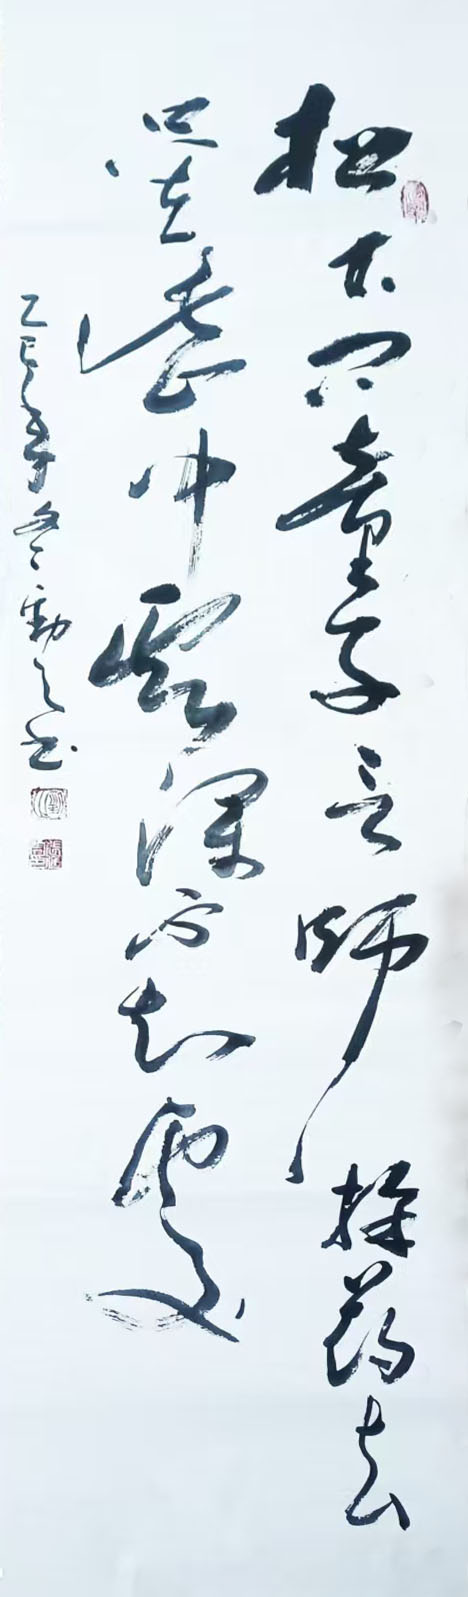 松下问童子言师採药去
只在此山中云深不知处
乙巳年冬勤之书